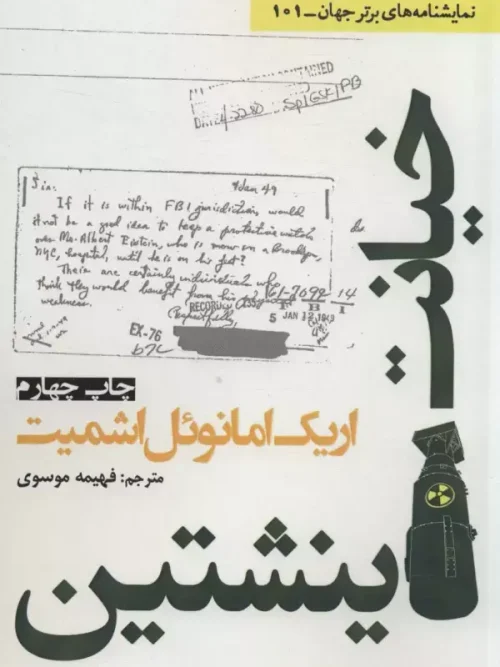 نمایشنامه‌های برتر جهان_۱۰۱
خیانت
Sir:
4 Jan 49
If it is within FBI jurisdiction, would
it not be a good idea to keep a protective watch
over Mr. Albert Einstein, who is now in a Brooklyn,
NYC, hospital, until he is on his feet?
There are certainly individuals who
think they would benefit from his
weakness.
61-7099
14
RECORDED
F B I
5 JAN
EX-76
b7c
چاپ چهارم
اریک امانوئل اشمیت
مترجم: فهیمه موسوی
اینشتین